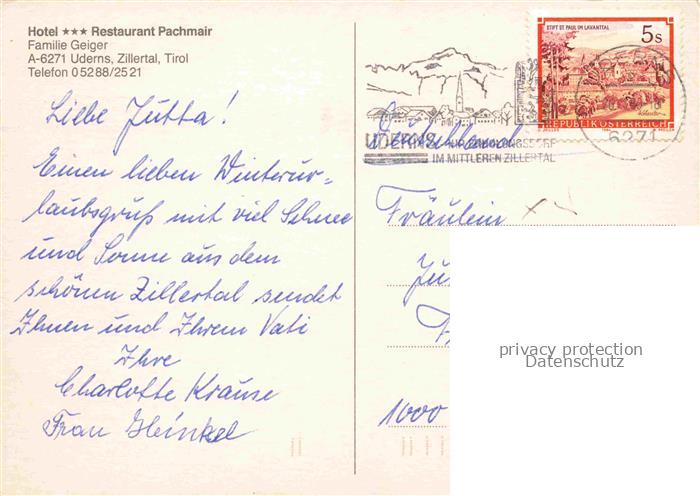 Hotel ★★★ Restaurant Pachmair
Familie Geiger
A-6271 Uderns, Zillertal, Tirol
Telefon 0 52 88/25 21
Liebe Jutta!
Einen lieben Winterur-
laubsgruß mit viel Schnee
und Sonne aus dem
schönen Zillertal sendet
Ihnen und Ihrem Vati
Ihre
Charlotte Krause
Frau Heinkel
STIFT ST. PAUL IM LAVANTTAL
5s
REPUBLIK ÖSTERREICH
6271
UDERNS
IM MITTLEREN ZILLERTAL
Fräulein
1000
privacy protection
Datenschutz